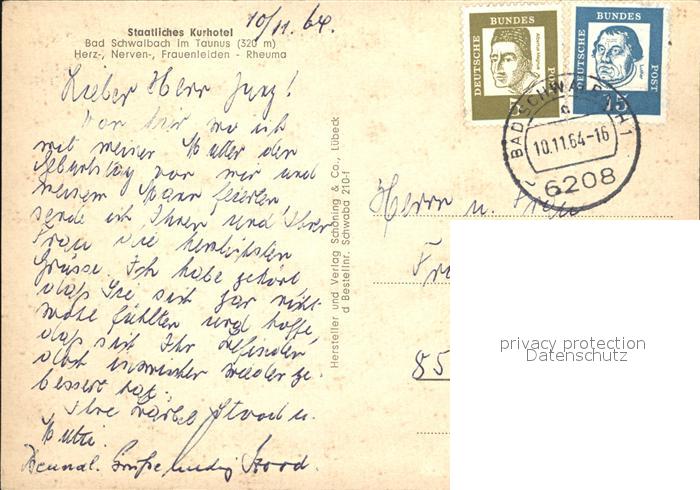 10/11. 64.
Staatliches Kurhotel
Bad Schwalbach im Taunus (320 m)
Herz-, Nerven-, Frauenleiden - Rheuma
Lieber Herr Jung!
Von hier wo ich
mit meiner Mutter den
Geburtstag von mir und
meinem Mann feierten
sende ich Ihnen und Ihrer
Frau die herzlichsten
Grüsse. Ich habe gehört
daß Sie sich gar nicht
wohl fühlten und hoffe,
daß sich Ihr Befinden
doch inzwischen wieder ge-
bessert hat.
Ihre
Mutti.
Grüße
Hersteller und Verlag Schöning & Co., Lübeck
d Bestellnr. Schwaba 210-f
DEUTSCHE BUNDES POST
Albertus Magnus
DEUTSCHE BUNDES POST
Luther
15
BAD SCHWALBACH 1
a
10.11.64-16
6208
Herrn u.
85
privacy protection
Datenschutz